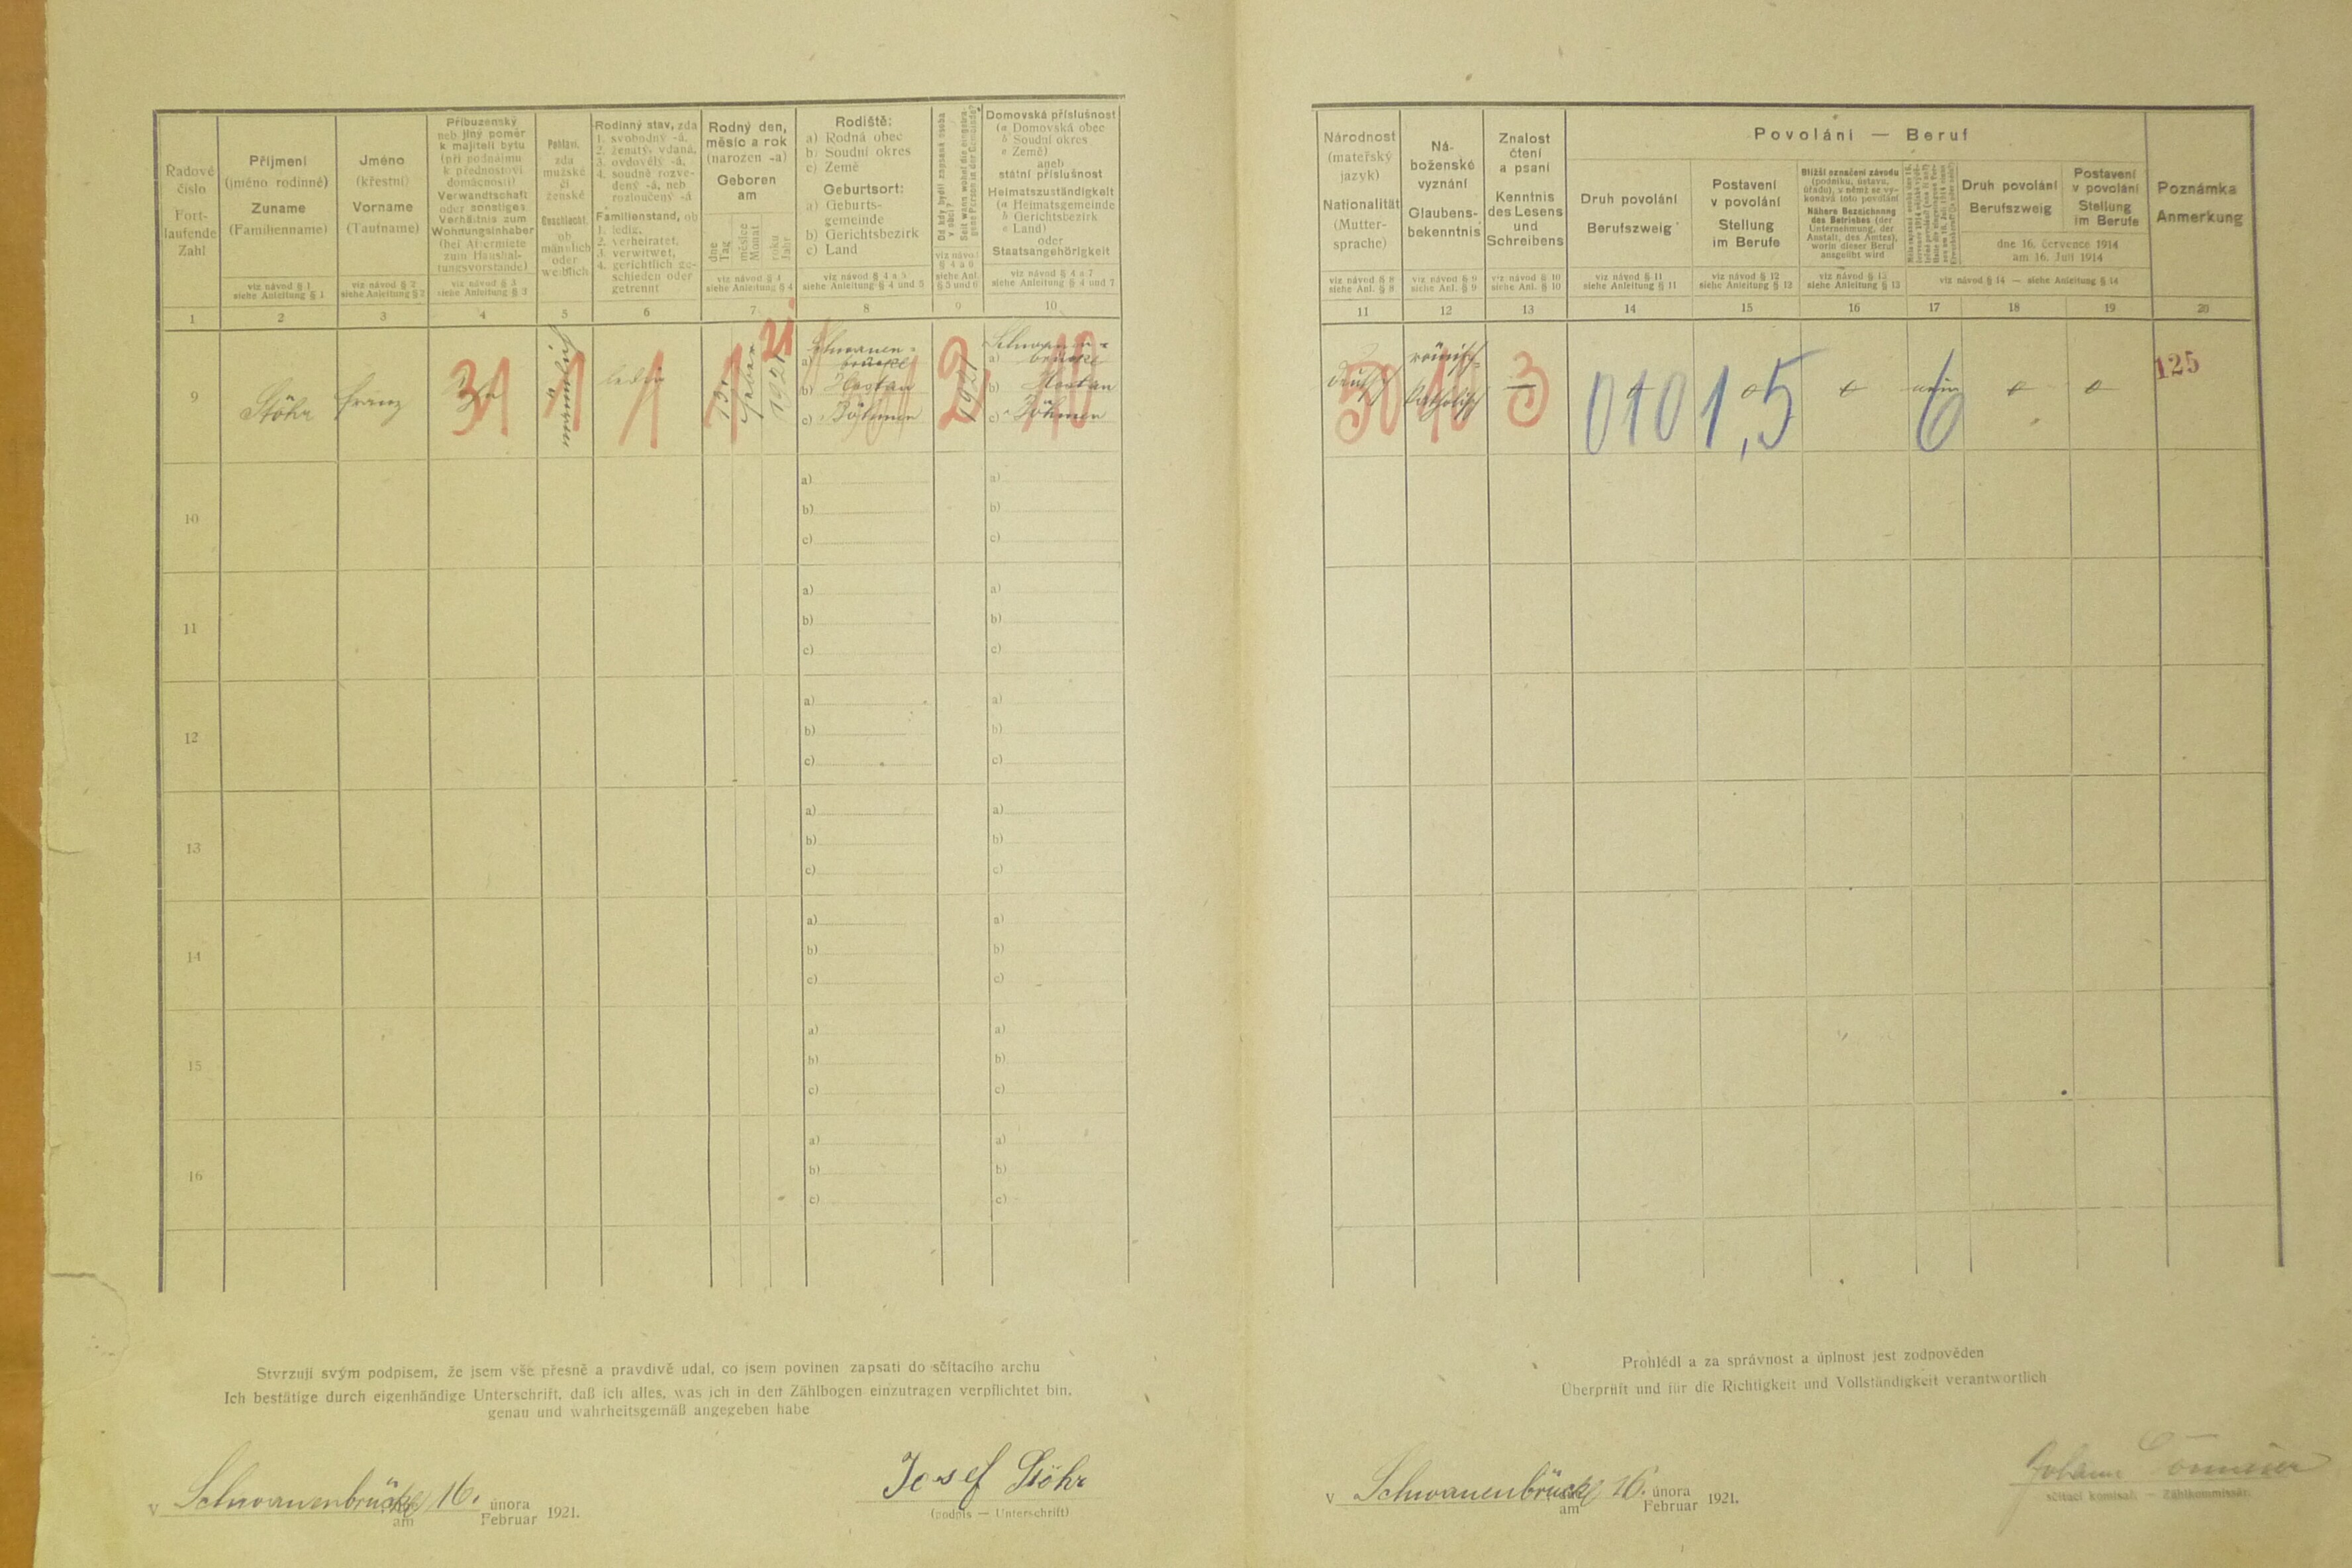 Řadové
číslo
Fort-
laufende
Zahl
Příjmení
(jméno rodinné)
Zuname
(Familienname)
viz návod § 1
siehe Anleitung § 1
Jméno
(křestní)
Vorname
(Taufname)
viz návod § 2
siehe Anleitung § 2
Příbuzenský
neb jiný poměr
k majiteli bytu
(při podnájmu
k přednostovi
domácnosti)
Verwandtschaft
oder sonstiges
Verhältnis zum
Wohnungsinhaber
(bei Aftermiete
zum Haushal-
tungsvorstande)
viz návod § 3
siehe Anleitung § 3
Pohlaví,
zda
mužské
či
ženské
Geschlecht,
ob
männlich
oder
weiblich
Rodinný stav, zda
1. svobodný -á,
2. ženatý, vdaná,
3. ovdovělý -á,
4. soudně rozve-
dený -á, neb
rozloučený -á
Familienstand, ob
1. ledig,
2. verheiratet,
3. verwitwet,
4. gerichtlich ge-
schieden oder
getrennt
Rodný den,
měsíc a rok
(narozen -a)
Geboren
am
dne
Tag
měsíce
Monat
roku
Jahr
viz návod § 4
siehe Anleitung § 4
Rodiště:
a) Rodná obec
b) Soudní okres
c) Země
Geburtsort:
a) Geburts-
gemeinde
b) Gerichtsbezirk
c) Land
viz návod § 4 a 5
siehe Anleitung § 4 und 5
Od kdy bydlí zapsaná osoba
v obci?
Seit wann wohnt die eingetra-
gene Person in der Gemeinde?
viz návod
§ 4 a 6
siehe Anl.
§ 5 und 6
Domovská příslušnost
(a Domovská obec
b Soudní okres
c Země)
aneb
státní příslušnost
Heimatszuständigkeit
(a Heimatsgemeinde
b Gerichtsbezirk
c Land)
oder
Staatsangehörigkeit
viz návod § 4 a 7
siehe Anleitung § 4 und 7
1 2 3 4 5 6 7 8 9 10
9 Stöhr Franz 31 1 ledig 1 1 13 1921 21
Schwanen-
a) brückl
b) Hostau
c) Böhmen
1921 2
Schwanen-
a) brückl
b) Hostau
c) Böhmen
10 a) a)
b) b)
c) c)
11 a) a)
b) b)
c) c)
12 a) a)
b) b)
c) c)
13 a) a)
b) b)
c) c)
14 a) a)
b) b)
c) c)
15 a) a)
b) b)
c) c)
16 a) a)
b) b)
c) c)
Stvrzuji svým podpisem, že jsem vše přesně a pravdivě udal, co jsem povinen zapsati do sčítacího archu
Ich bestätige durch eigenhändige Unterschrift, daß ich alles, was ich in den Zählbogen einzutragen verpflichtet bin,
genau und wahrheitsgemäß angegeben habe
V Schwanenbrückl am 16. února
Februar 1921.
Josef Stöhr
(podpis — Unterschrift)
Národnost
(mateřský
jazyk)
Nationalität
(Mutter-
sprache)
viz návod § 8
siehe Anl. § 8
Ná-
boženské
vyznání
Glaubens-
bekenntnis
viz návod § 9
siehe Anl. § 9
Znalost
čtení
a psaní
Kenntnis
des Lesens
und
Schreibens
viz návod § 10
siehe Anl. § 10
Povolání — Beruf
Druh povolání
Berufszweig
viz návod § 11
siehe Anleitung § 11
Postavení
v povolání
Stellung
im Berufe
viz návod § 12
siehe Anleitung § 12
Bližší označení závodu
(podniku, ústavu,
úřadu), v němž se vy-
konává toto povolání
Nähere Bezeichnung
des Betriebes (der
Unternehmung, der
Anstalt, des Amtes),
worin dieser Beruf
ausgeübt wird
viz návod § 13
siehe Anleitung § 13
Druh povolání
Berufszweig
Postavení
v povolání
Stellung
im Berufe
dne 16. července 1914
am 16. Juli 1914
viz návod § 14 — siehe Anleitung § 14
Poznámka
Anmerkung
11 12 13 14 15 16 17 18 19 20
deutsch 50 römisch-
katholisch 10 — 3 0101,5 nein 6 125
Prohlédl a za správnost a úplnost jest zodpověden
Überprüft und für die Richtigkeit und Vollständigkeit verantwortlich
V Schwanenbrückl am 16. února
Februar 1921.
Johann
sčítací komisař. — Zählkommissär.